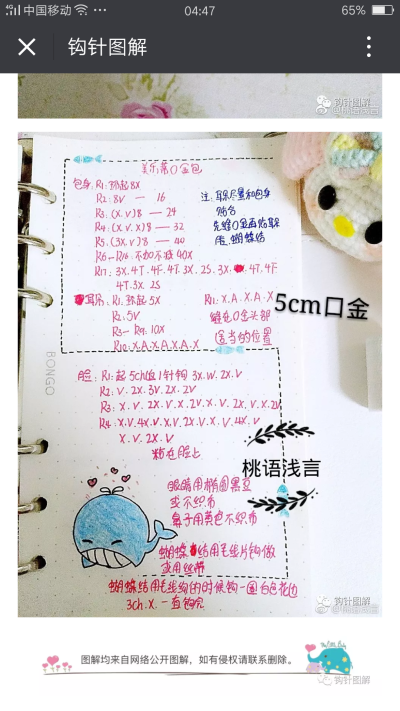 中国移动
04:47
65%
钩针图解
钩针图解
美乐蒂口金包
包身: R1: 环起8X
R2: 8V — 16
R3: (X.V)8 — 24
R4: (X.V.X)8 — 32
R5: (3X.V)8 — 40
R6—R16: 不加不减 40X
R17: 3X.4T.4F.4T.3X.2S.3X.4T.4F
4T.3X.2S
注:
先缝口金再粘耳
朵、蝴蝶结
耳朵: R1: 环起5X
R2: 5V
R3— R9: 10X
R10: X.A.X.A.X.A.X
R11: X.A.X.A.X
缝在口金头部
适当的位置
5cm口金
BONGO
脸: R1: 起5ch由1针钩3X.W.2X.V
R2: V.2X.3V.2X.2V
R3: X.V.2X.V.X.2V.X.V.2X.V.X.2V
R4: X.V.4X.V.X.V.2X.V.X.V.4X.V
X.V.2X.V
粘在脸上
桃语浅言
眼睛用椭圆黑豆
或不织布
鼻子用黄色不织布
蝴蝶结用毛线片钩做
或用丝带
蝴蝶结用毛线钩的时候钩一圈白色花边
3ch.X.一直钩完
钩针图解
图解均来自网络公开图解，如有侵权请联系删除。
钩针图解